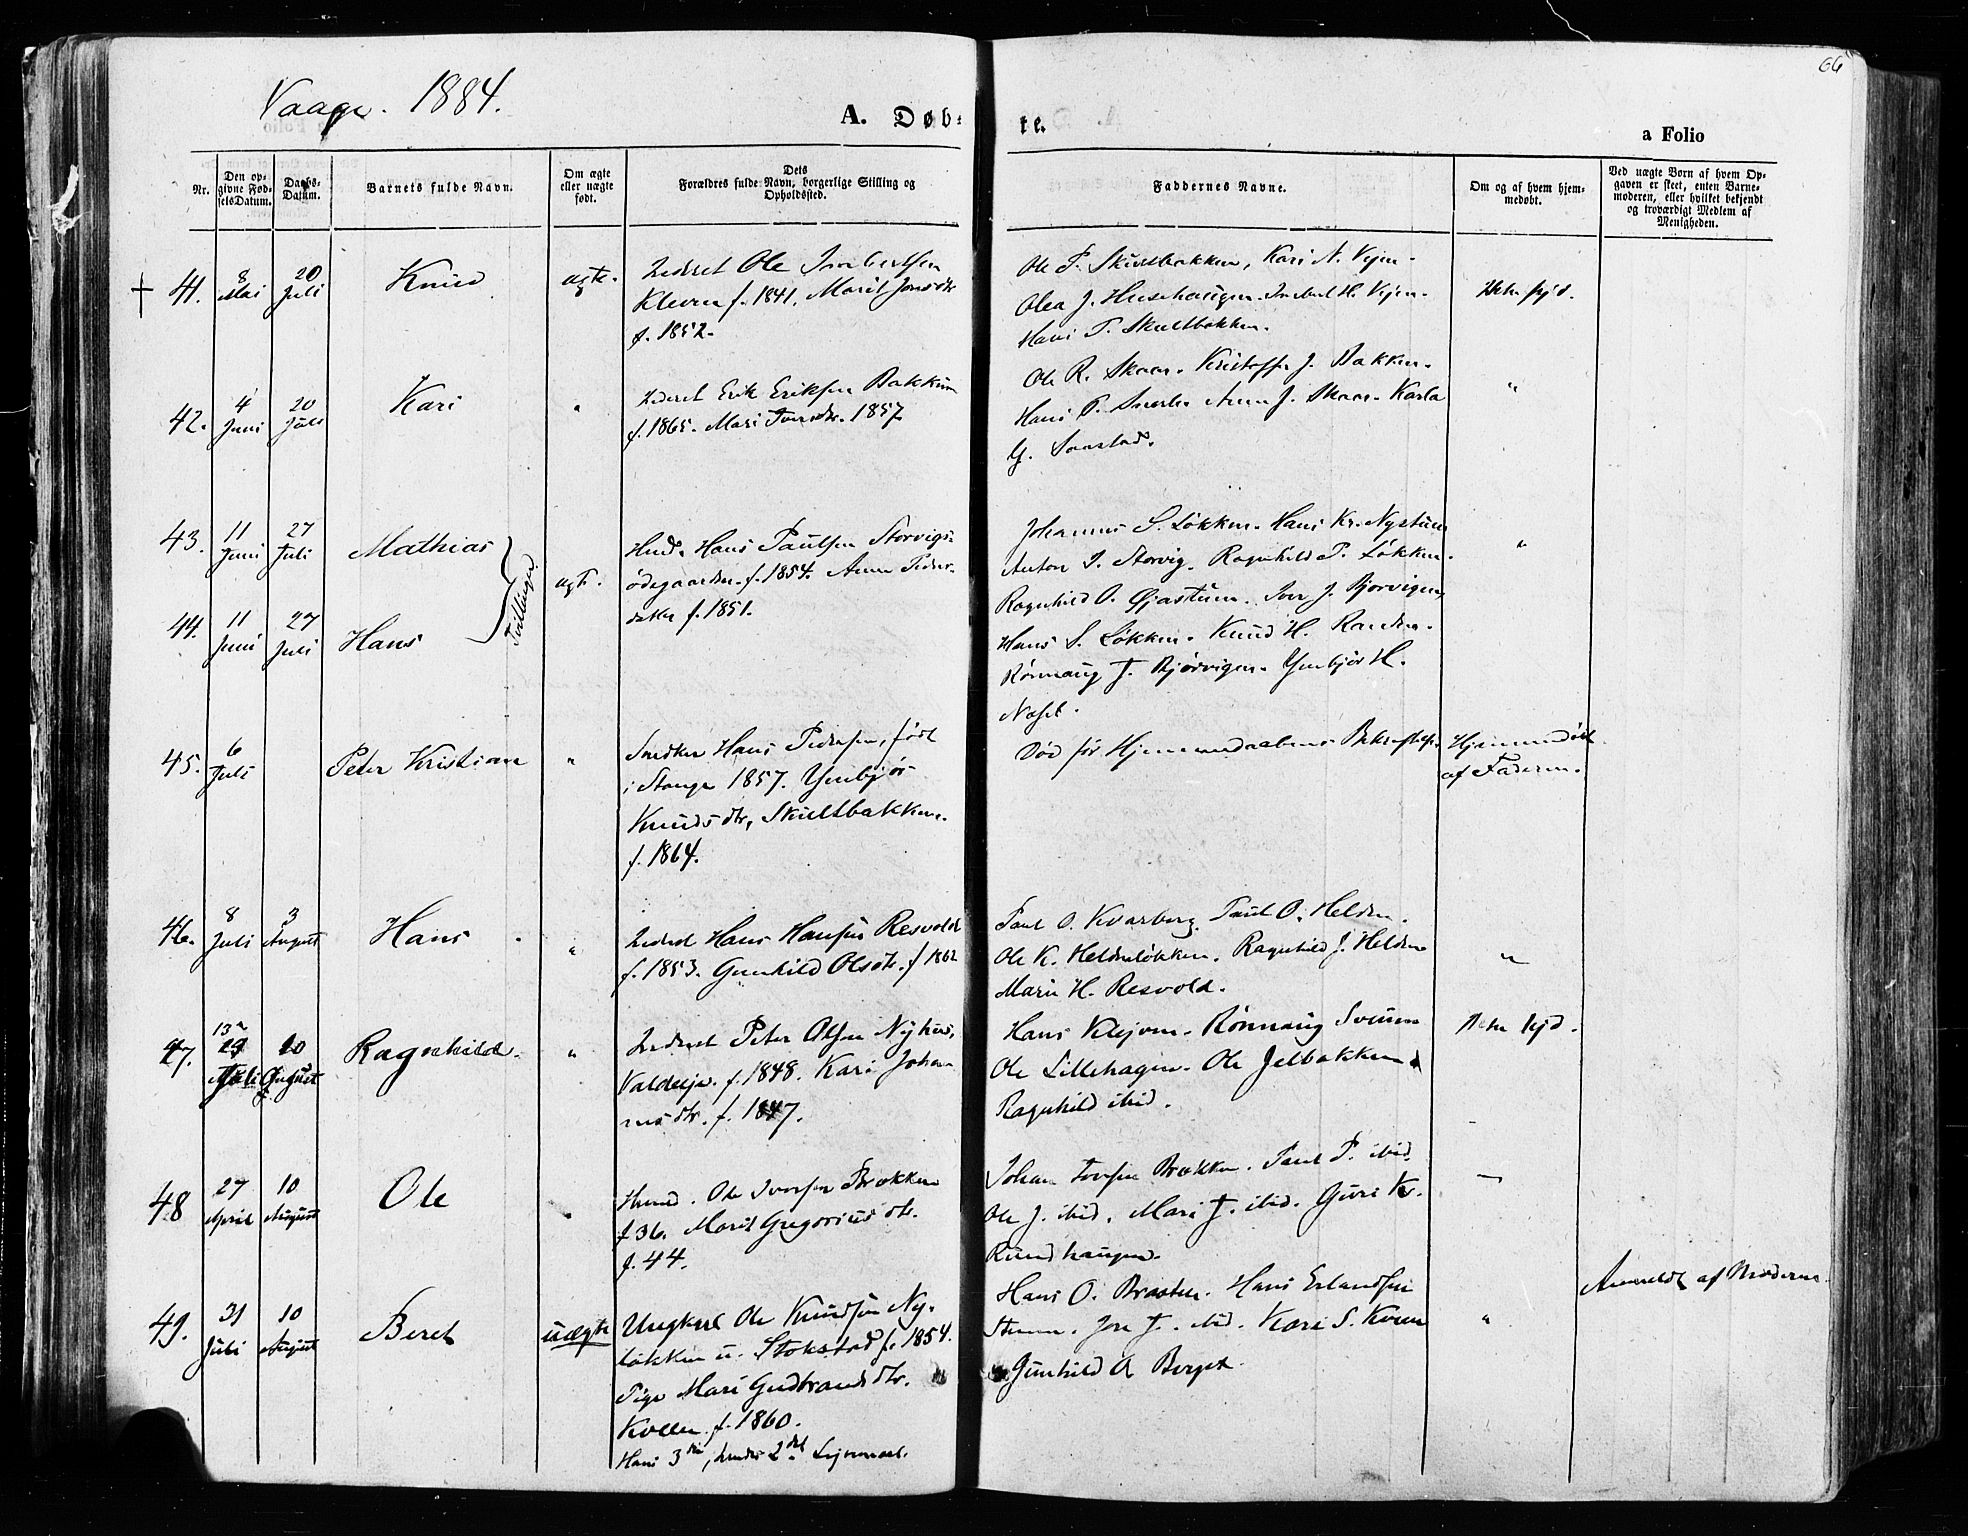 66
Vaage. 1884.
A. Døb-
te.
a Folio
Nr.
Den op-
givne Fød-
selsDatum.
Daabs-
Datum.
Barnets fulde Navn.
Om ægte
eller uægte
født.
Dets
Forældres fulde Navn, borgerlige Stilling og
Opholdssted.
Faddernes Navne.
Om og af hvem hjem-
medøbt.
Ved uægte Børn af hvem Op-
gaven er skeet, enten Barne-
moderen, eller hvilket bekjendt
og troværdigt Medlem af
Menigheden.
41.
8
Mai
20
Juli
Knud
ægte.
Inderst Ole
Kleven f. 1841. Marit Jonsdtr
f. 1852.
Ole P. Skultbakken, Kari N. Vejen.
Olea J. Husehaugen. H. Vejen.
Hans P. Skultbakken.
42.
4
Juni
20
Juli
Kari
"
Inderst Erik Eriksen Bakken
f. 1865. Mari Iversdtr. 1857
Ole R. Skaar. Kristoffer J. Bakken.
Hans P. Anne J. Skaar. Karla
G.
"
43.
11
Juni
27
Juli
Mathias
44.
11
Juni
27
Juli
Hans
Tvillinger
ægte.
Husm. Hans Paulsen Storvigs-
ødegaarden. f. 1854. Anne Peders-
datter f. 1851.
Johannes S. Løkken. Hans Kr. Nystuen
Anton I. Storvig. Ragnhild P. Løkken.
Ragnhild O. Øjastuen. Iver J. Bjorvigen,
Hans S. Løkken. Knud H. Randen.
Rønnaug J. Bjørvigen. Ymbjør H.
"
45.
6
Juli
Peter Kristian
"
Snedker Hans Pedersen, født
i Stange 1857. Ymbjør
Knudsdtr, Skultbakken.
f. 1864.
Død før Hjemmedaabens Bekræftelse.
Hjemmedøbt
af Faderen.
46.
8
Juli
3
August
Hans
"
Inderst Hans Hansen Resvold
f. 1853. Gunhild Olsdtr. f 1862
Paul O. Kvarberg. Paul O. Helden.
Ole K. Heldenløkken. Ragnhild J. Helden
Marie H. Resvold.
"
47.
13
Juli
10
August
Ragnhild.
"
Inderst Peter Olsen Nyhus,
f. 1848. Kari Johan-
nesdtr. f. 1847.
Hans Klejven. Rønnaug Sveen
Ole Lillehagen. Ole Jelbakken
Ragnhild ibid.
48
27
April
10
August
Ole
"
Husmd. Ole Iversen Brækken
f 36. Marit Gregoriusdtr.
f. 44.
Johan Iversen Brækken. Paul P. ibid.
Ole J. ibid. Mari J. ibid. Guri K.
Rundhaugen.
—
49.
31
Juli
10
August
Beret
uægte
Ungkarl Ole Knudsen Ny-
løkken u. Stokstad f. 1854.
Pige Mari Gudbrandsdtr.
Kollen f. 1860.
Hans 3die, hendes 2det Lejermaal.
Hans O. Braaten. Hans Erlandsen
Jon J. ibid. Kari S. Kvien
Gunhild A Berget.
"
Anmeldt af Moderen.